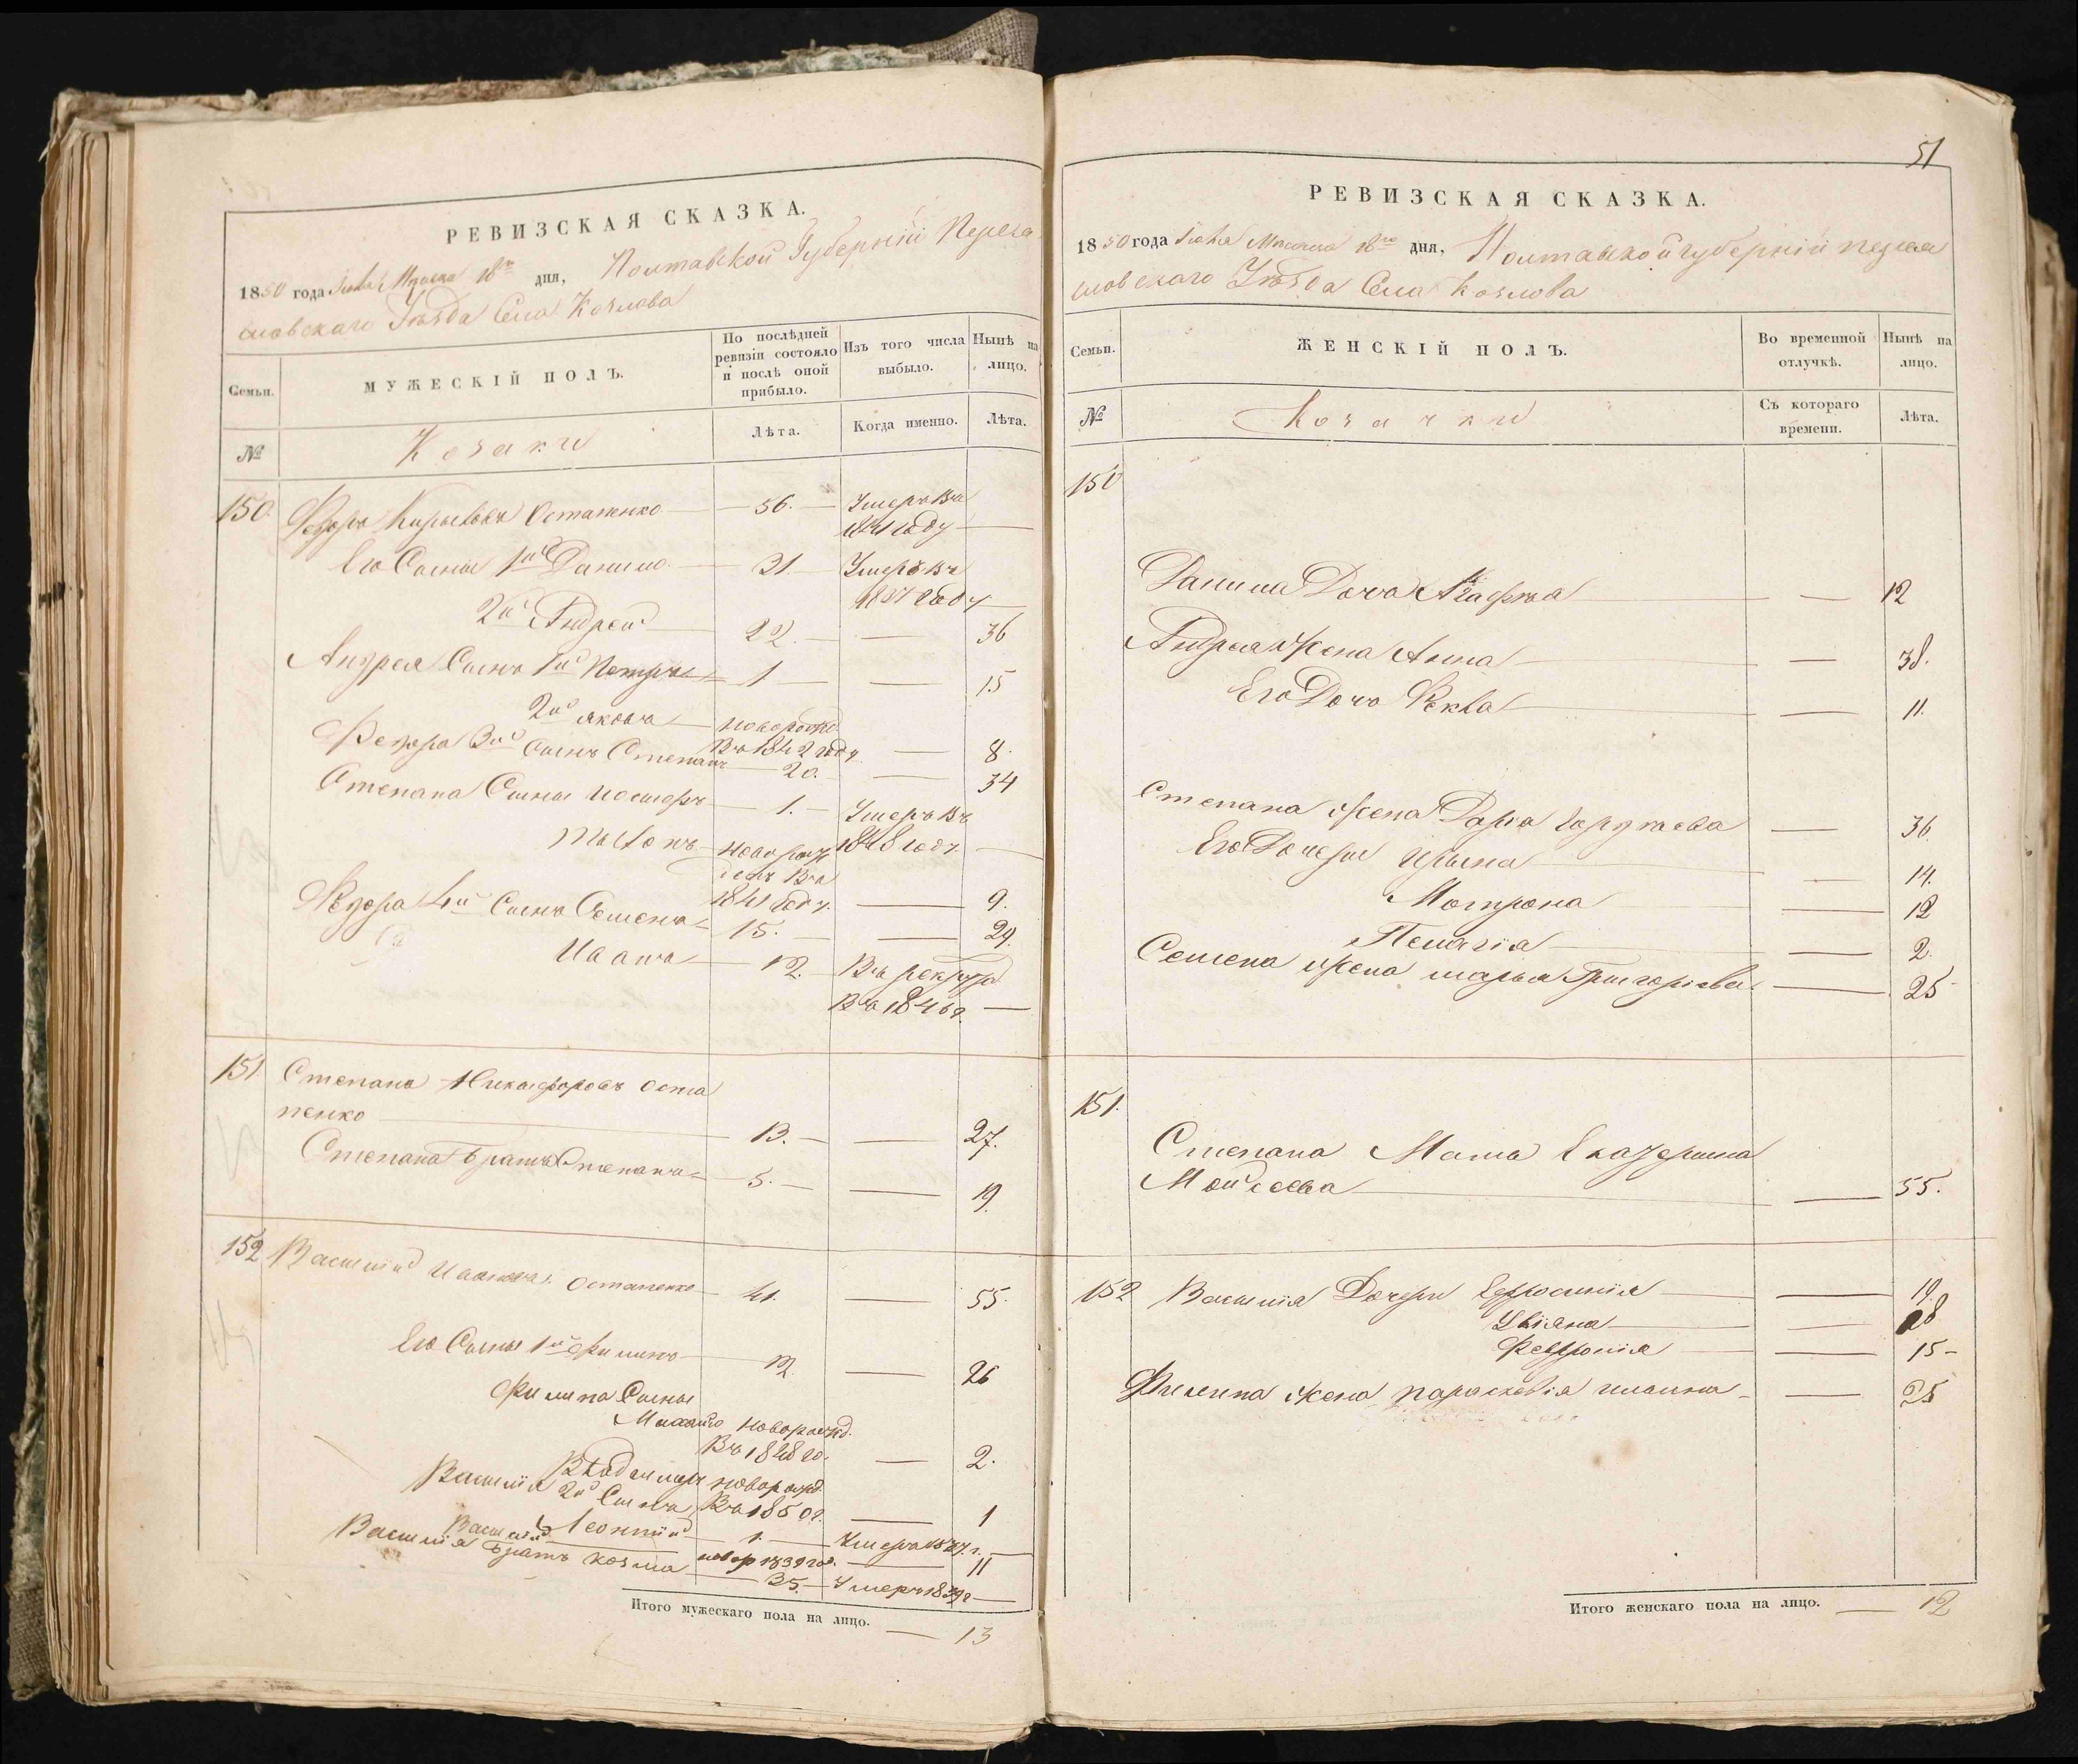 РЕВИЗСКАЯ СКАЗКА.
1850 года Июня Месяца 18го дня, Полтавской Губерніи Перея
словскаго Уѣзда Села Козлова
Семьи.
МУЖЕСКІЙ ПОЛЪ.
По послѣдней
ревизіи состояло
и послѣ оной
прибыло.
Изъ того числа
выбыло.
Нынѣ на
лицо.
№
Козаки
Лѣта.
Когда именно.
Лѣта.
150. Федоръ Остапенко 56. Умеръ въ
1841 году
Его Сыны 1й Данило 31. Умеръ въ
1837 году
2й Андрей 22. 36
Андрея Сынъ 1й Петръ 1 15
2й Яковъ новорожд.
въ 1842 году 8.
Федора 3й Сынъ Степанъ 20. 34
Степана Сыны 1. Умеръ въ
1848 году
новорож
денъ въ
1841 году. 9.
Федора 4й Сынъ Семенъ 15. 29.
Иванъ 12. Въ рекруты
въ 1846г.
151. Степанъ Никифоровъ Оста
пенко 13. 27.
Степана Братъ Степанъ 5. 19.
152 Василій Ивановъ Остапенко 41. 55.
Его Сыны 1й Филипъ 12 26
Филипа Сыны
Михайло новорожд.
въ 1848 го. 2.
Владимиръ новорожд.
въ 1850г. 1
Василія 2й Сынъ
Василій 1. Умеръ 1837.г.
Леонтій новор 1839 год. 11
Василія Братъ Козма 35. Умеръ 1839г
Итого мужескаго пола на лицо. 13
51
РЕВИЗСКАЯ СКАЗКА.
1850 года Июня Месяца 18го дня, Полтавской губерніи Перея
словскаго Уѣзда Села Козлова
Семьи.
ЖЕНСКІЙ ПОЛЪ.
Во временной
отлучкѣ.
Нынѣ на
лицо.
№
Козачки
Съ котораго
времени.
Лѣта.
150
Данила Дочь Агафья 12
Андрея Жена Анна 38.
Его Дочь Фекла 11.
Степана Жена Дарья 36.
Его Дочери Ирина 14.
Мотрона 12
Пелагія 2.
Семена Жена Марья Григорьева 25
151.
Степана Мать Екатерина
Мойсеева 55.
152 Василія Дочери Ефросинія 19.
Уліяна 18
Февронія 15
Филипа Жена Параскевія 25
Итого женскаго пола на лицо. 12